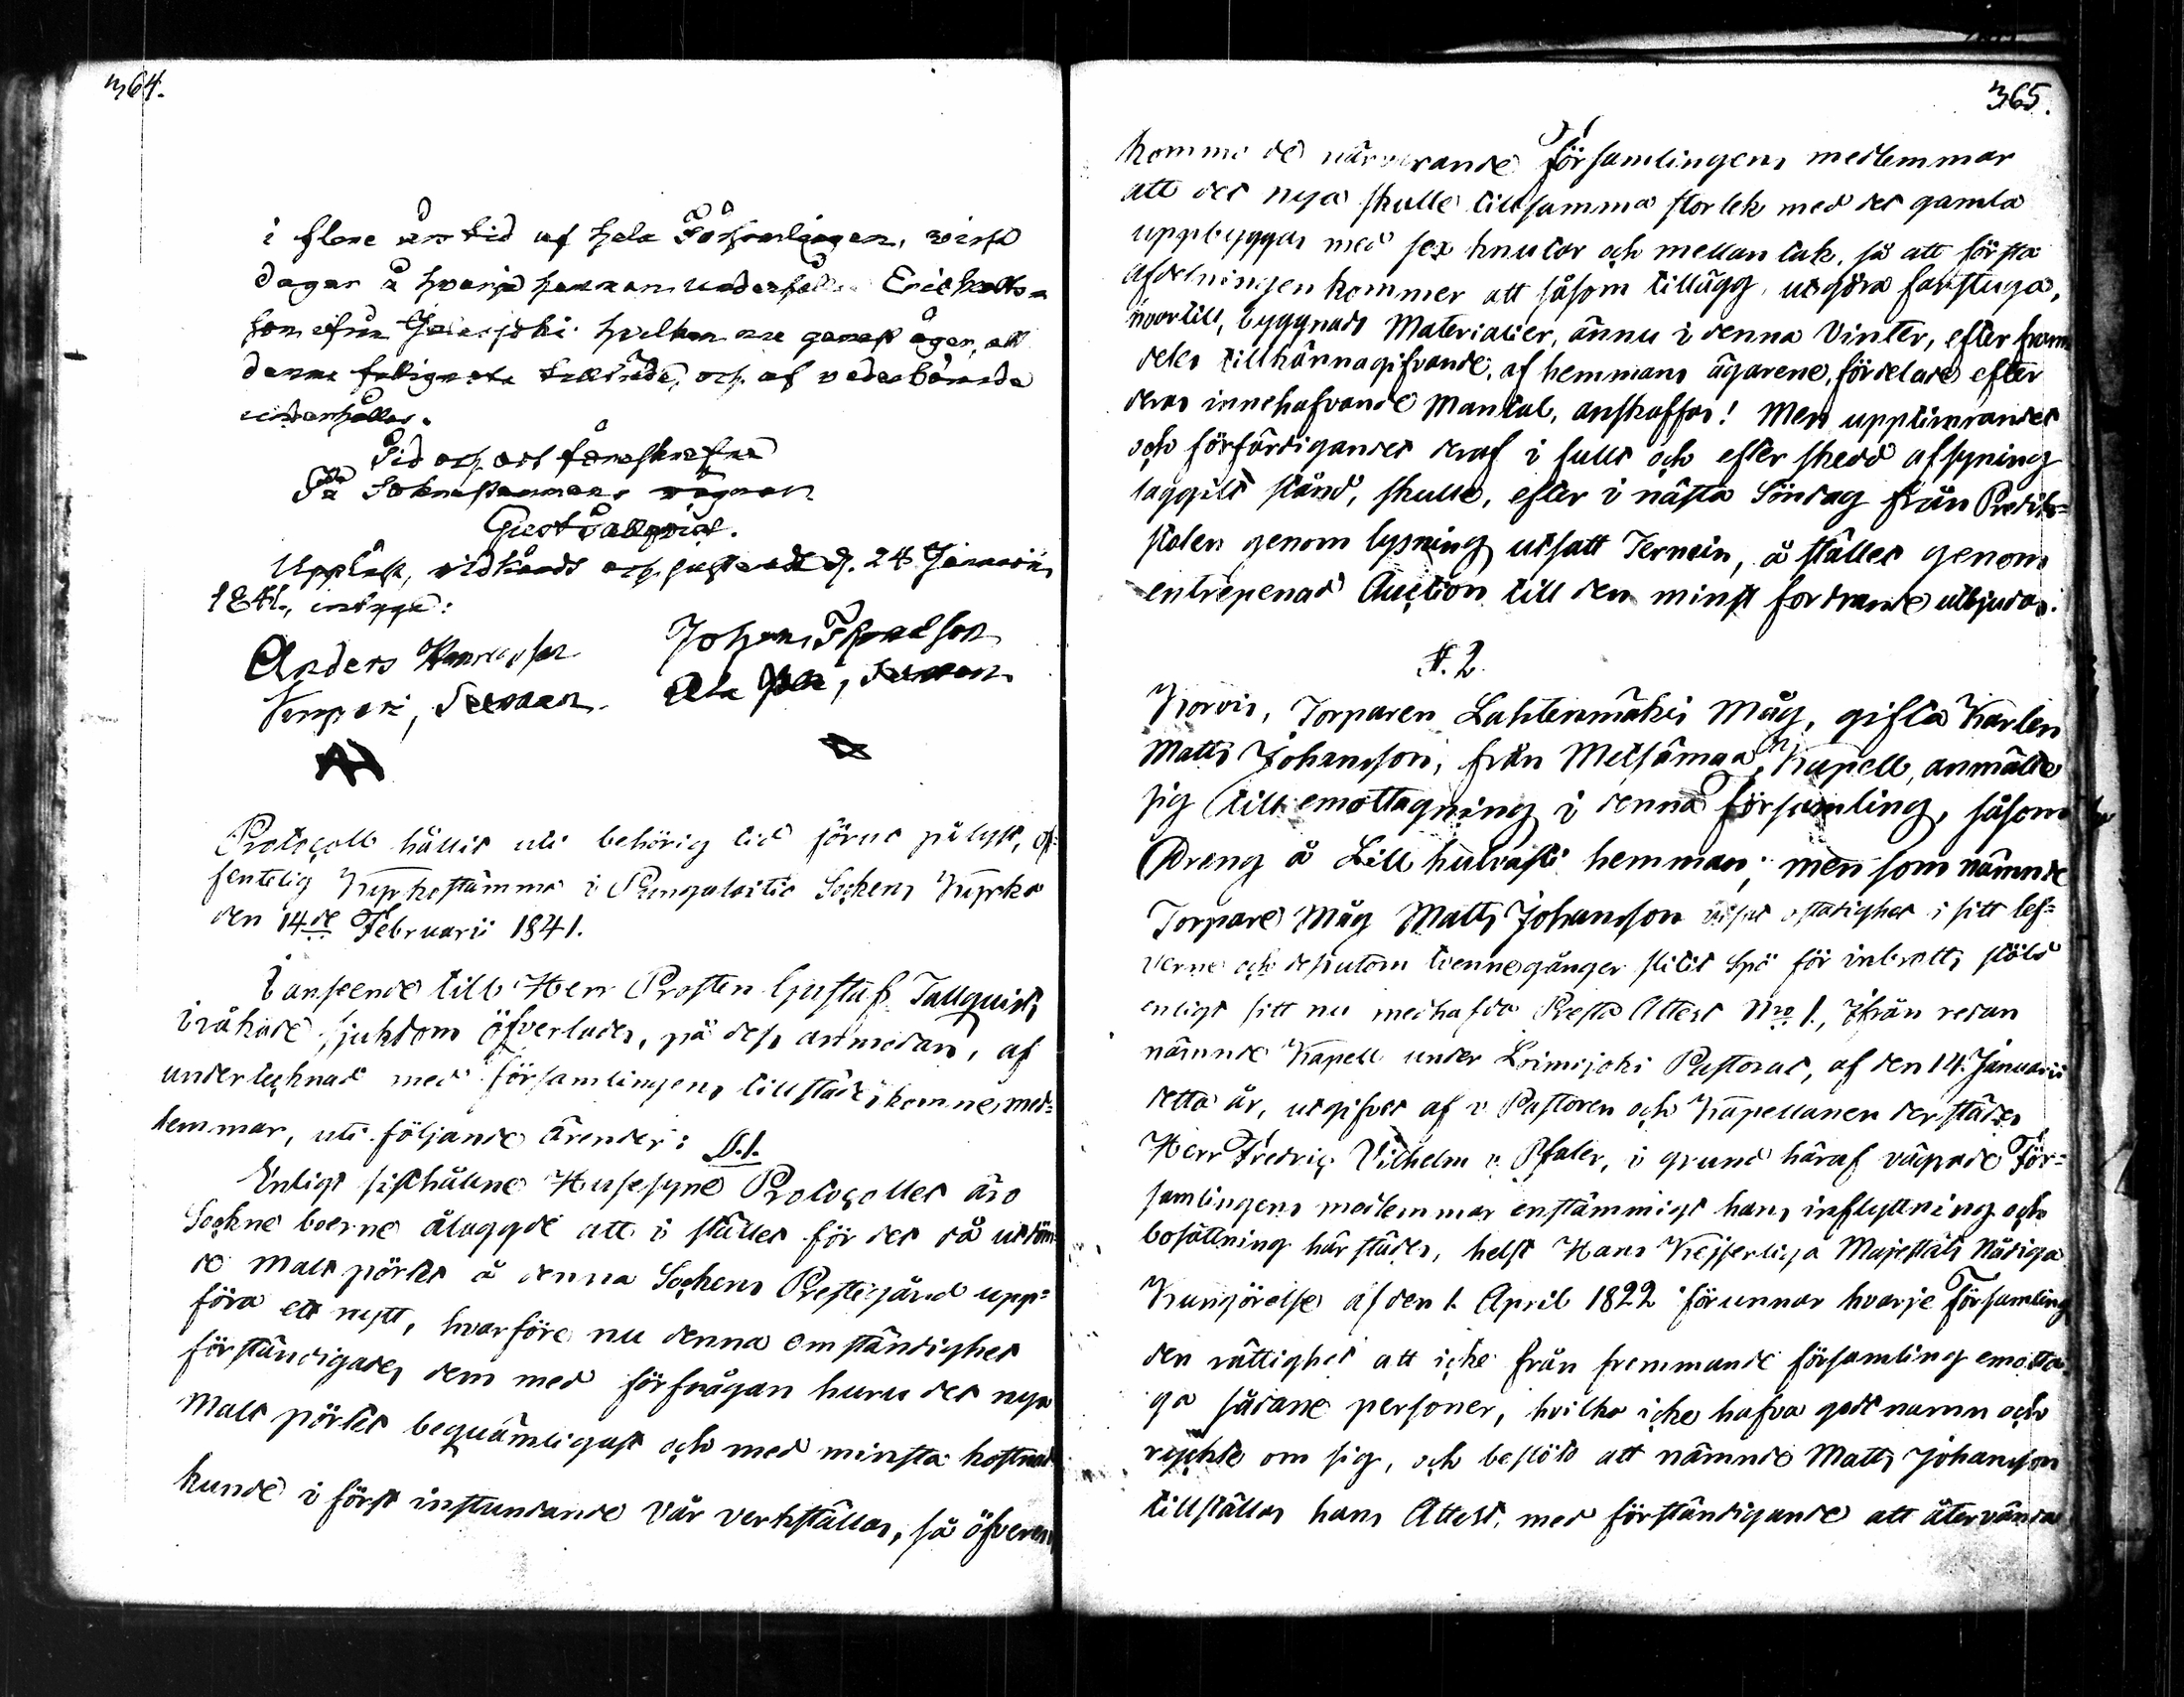 364.
i flere års tid af hela Församlingen, wissa
dagar å hvarje hemman underhållen Eric Matts-
son ifrån hvilken nu genast äger, att
denna och af vederbörande
underhållas.
Tid och ort förutskrefne
På Sockenstämmans wägnar
Gust Tallqvist.
Uppläst, vidkändt och justeradt d. 24 Januarii
1841, intyga:
Anders
Johan
Protocoll hållit uti behörig tid förut pålyst, of-
fentelig Kyrkostämma i Pungalaitio Sockens Kyrka
den 14de Februarii 1841.
I anseende till Herr Prosten Gustaf Tallquists
iråkade sjukdom öfverlades, på dess anmodan, af
undertecknad med församlingens tillstädeskomne med-
lemmar, uti följande ärender: §.1.
Enligt sisthållne Husesyne Protocollet äro
Sockneboerne ålaggde att i stället för det då utdöm-
de Malt pörtet å denna Sockens Prestegård upp-
föra ett nytt, hvarföre nu denna omständighet
förständigades dem med förfrågan huru det nya
Malt pörtet bequämligast och med minsta kostnad
kunde i först instundande Vår verkställas, så öfverens
365.
kommo de närvarande Församlingens medlemmar
att det nya skulle till samma storlek med det gamla
uppbyggas med sex knutar och mellan tak, så att första
afdelningen kommer att såsom tillägg, utgöra farstuga,
hvartill, byggnads Materialier, ännu i denna Vinter, efter fram
deles tillkännagifvande, af hemmans ägarene, fördelade efter
deras innehafvande Mantal, anskaffas! Men upptimrandet
och förfärdigandet deraf i fullt och efter skedd afsyning
laggilt stånd, skulle, efter i nästa Söndag från Predik-
stolen genom lysning utsatt Termin, å stället genom
entrepenad Auction till den minst fordrande utbjudas.
§. 2.
Korvis, Torparen Lahtenmäkis Måg, gifta Karlen
Matts Johansson, från Metsämaa Kapell, anmälte
sig till emottagning i denna Församling, såsom
Dreng å Lill hemman; men som nämnde
Torpare Måg Matts Johansson visat ostadighet i sitt lef-
verne och dessutom tvennegånger slitit Spö för inbrotts stöld
enligt sitt nu medhafda Presta Attest No 1., ifrån redan
nämnde Kapell under Loimijoki Pastorat, af den 14. Januarii
detta år, utgifvet af v. Pastoren och Kapellanen derstädes
Herr Fredric Vilhelm v. Pfaler, i grund häraf vägrade För-
samlingens medlemmar enstämmigt hans inflyttning och
bosättning härstädes, helst Hans Kejserliga Majestäts Nådiga
Kungörelse af den 1. April 1822 förunnar hvarje Församling
den rättighet att icke från fremmande församling emotta-
ga sådane personer, hvilka icke hafva godt namn och
rychte om sig, och beslöts att nämnde Matts Johansson
tillställas hans Attest, med förständigande att återvända